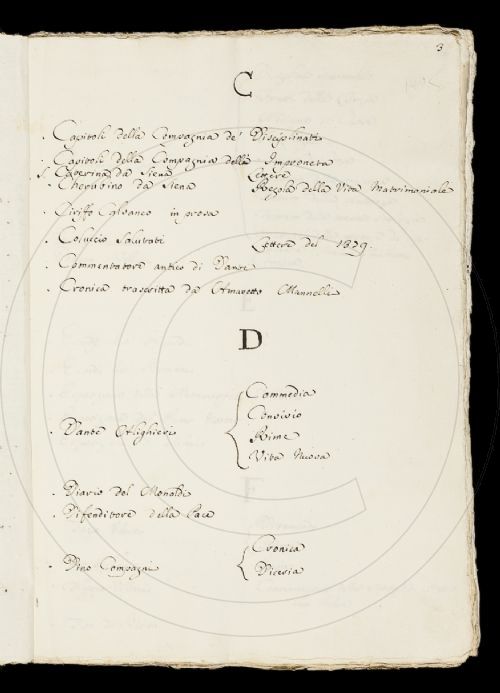 3
C
. Capitoli della Compagnia de' Disciplinati
. Capitoli della Compagnia della Impruneta
S. Caterina da Siena Lettere
. Cherubino da Siena Regola della Vita Matrimoniale
. Ciriffo Calvaneo in prosa
. Coluccio Salutati Lettere del 1379.
. Commentatore antico di Dante
. Cronica trascritta da Amaretto Mannelli
D
. Dante Alighieri
Commedia
Convivio
Rime
Vita Nuova
. Diario del Monaldi
. Difenditore della Pace
. Dino Compagni
Cronica
Diceria